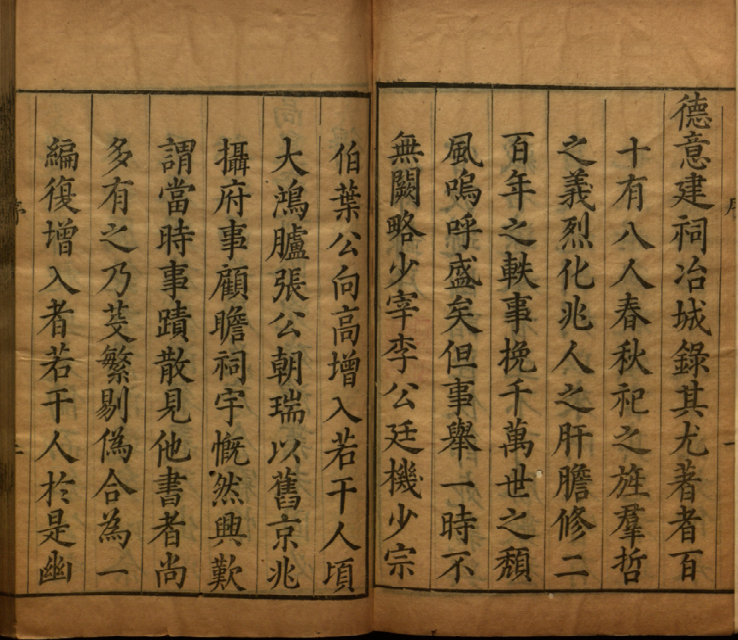 德意建祠冶城錄其尤著者百
十有八人春秋祀之旌羣哲
之義烈化兆人之肝膽修二
百年之軼事挽千萬世之頹
風嗚呼盛矣但事舉一時不
無闕略少宰李公廷機少宗
伯葉公向高增入若干人頃
大鴻臚張公朝瑞以舊京兆
攝府事顧瞻祠宇慨然興歎
謂當時事蹟散見他書者尚
多有之乃芟繁剔偽合為一
編復增入者若干人於是幽
序